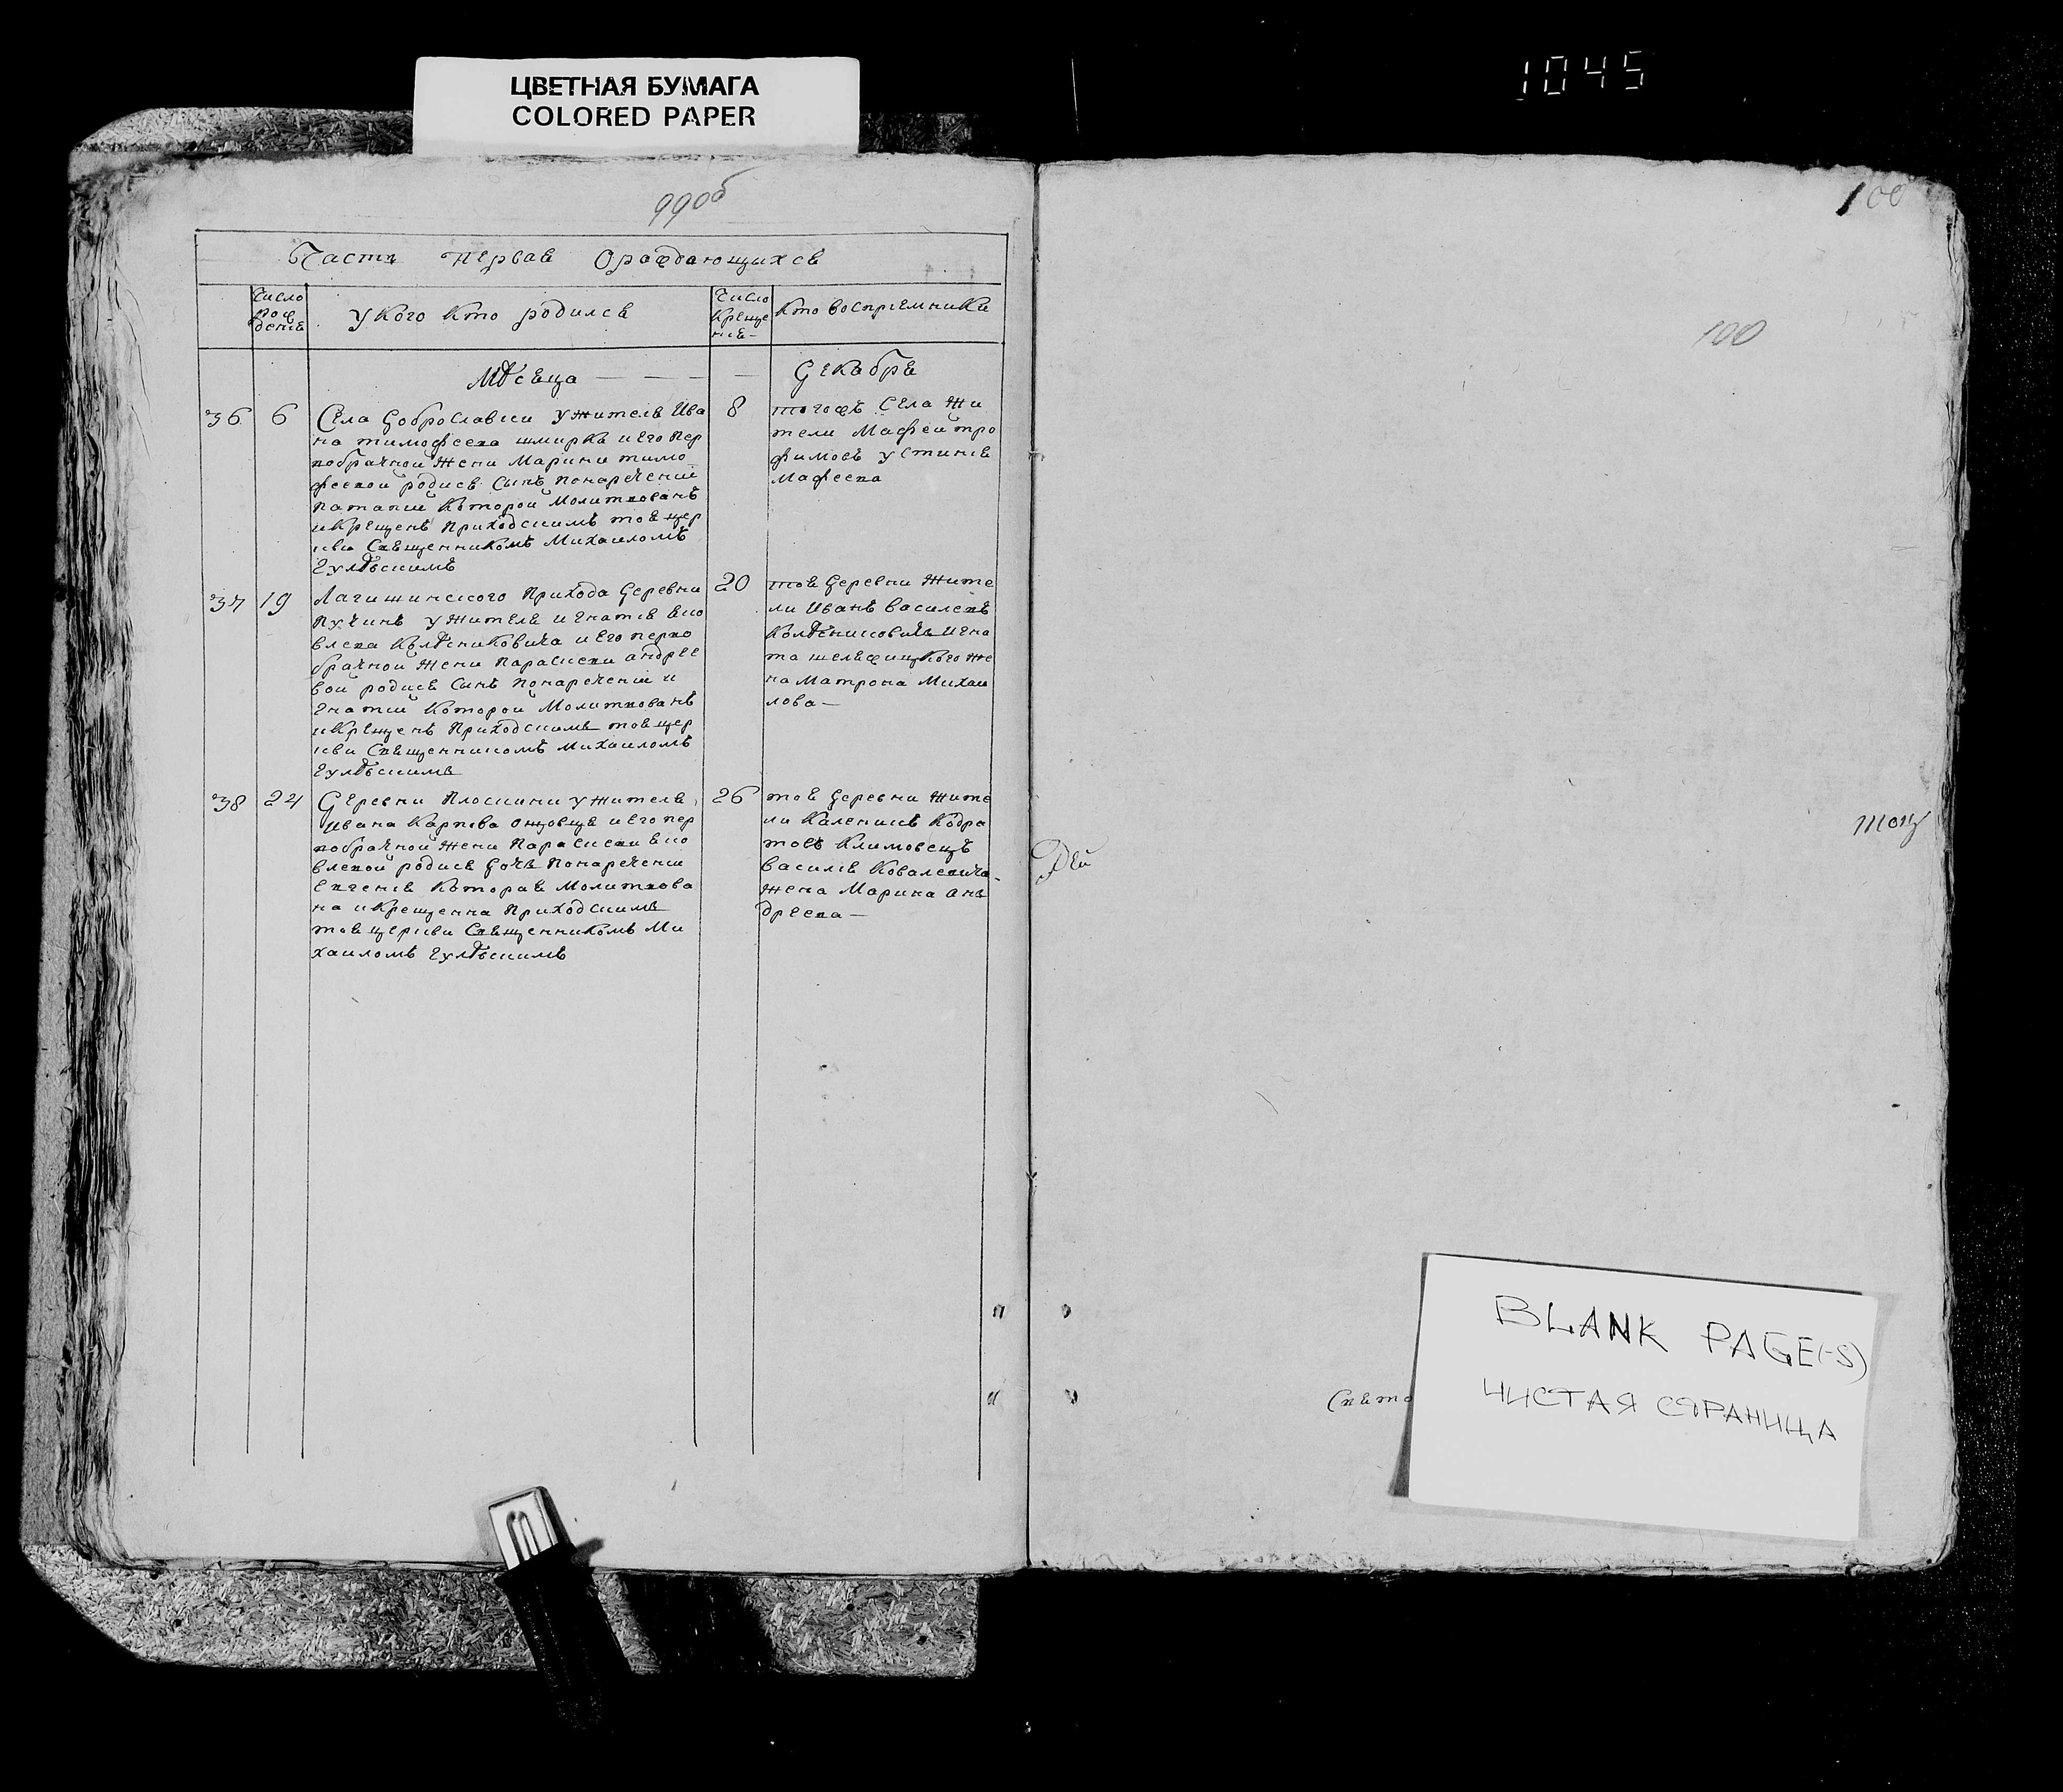 ЦВЕТНАЯ БУМАГА
COLORED PAPER
1045
99об
100
100
Часть первая Ораждающихся
Число рождения
у кого кто родился
Число крещения
кто восприемники
Мѣсяца — — — — Декабря
36 6
Села Доброславки у жителя Ива
на тимофеева шмирка и его пер
вобрачной жени Марини тимо
феевой родися сынъ понаречении
Потапий которой Молитвованъ
и крещенъ приходскимъ тоя цер
кви Священникомъ Михаиломъ
8
тогожъ Села жи
тели Мафей тро
фимовъ устиния
Мафеева
37 19
Лагишинского прихода деревни
у жителя игнатия
и его перво
брачной жени Параскеви андрее
вой родися сынъ понаречении и
гнатий которой Молитвованъ
и крещенъ приходскимъ тоя цер
кви Священникомъ Михаиломъ
20
тоя деревни жите
ли Иванъ василевъ
игна
та же
на Матрона Михаи
лова —
38 24
Деревни Плоскини у жителя
ивана Карпова и его пер
вобрачной жени Параскеви
родися дочь понаречении
евгения которая Молитвова
на и крещенна приходскимъ
тоя церкви Священникомъ Ми
хаиломъ
26
тоя деревни жите
ли Кодра
товъ Климовецъ
василя Ковалевича
жена Марина анъ
дреева —
BLANK PAGE(-S)
ЧИСТАЯ СТРАНИЦА